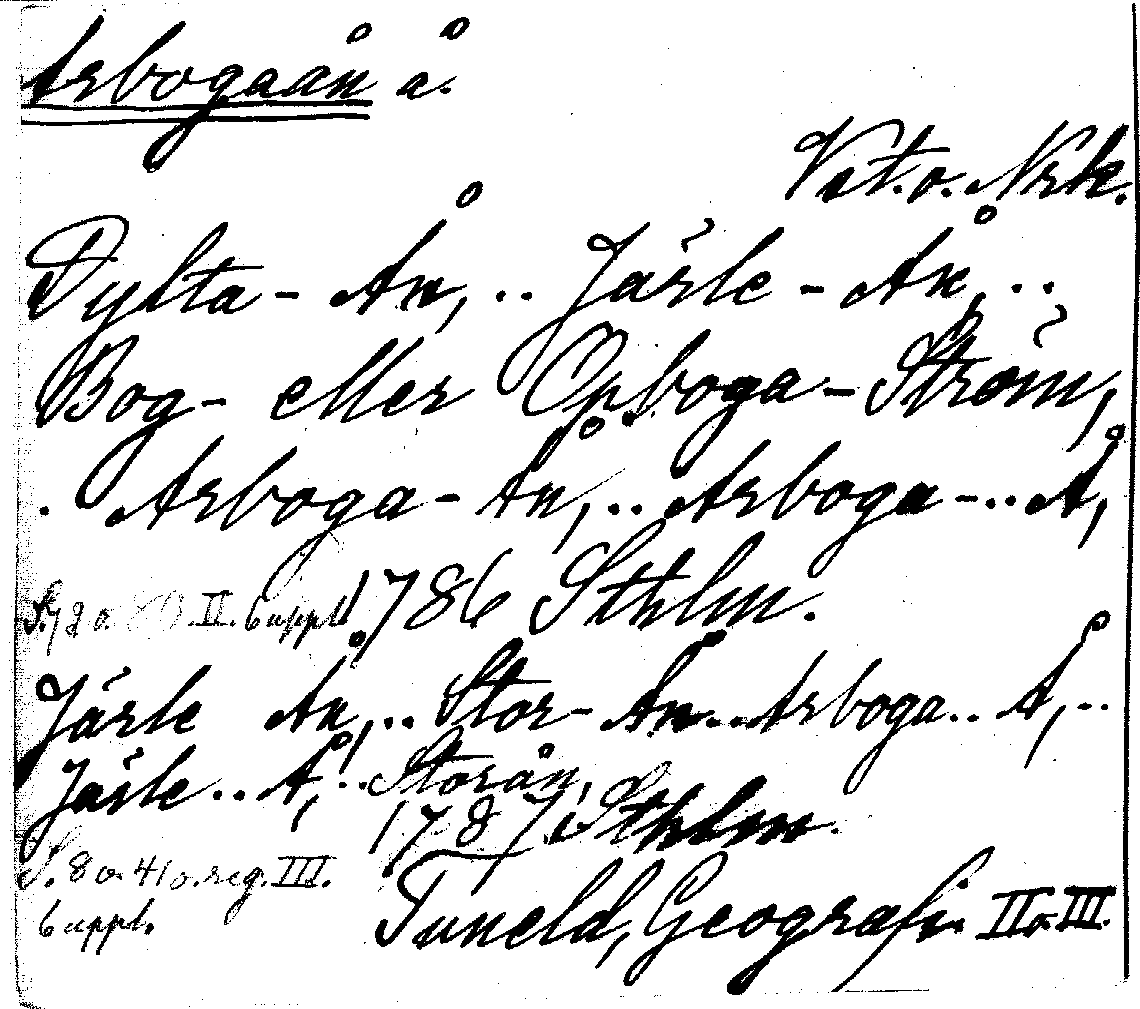 Arbogaån å.
Vst. o. Nrk.
Dylta-Ån, .. Järle-Ån, ..
Bog- eller Opboga-Ström,
. Arboga-Ån, .. Arboga-.. Å,
S. 7, 8 o. II. 6 uppl. 1786 Sthlm.
Järle Ån, .. Stor-Ån .. Arboga .. Å, ..
Järle .. Å, .. Storån,
1787 Sthlm.
S. 8 o. 41 o. reg. III.
6 uppl.
Tuneld, Geografi. II o. III.